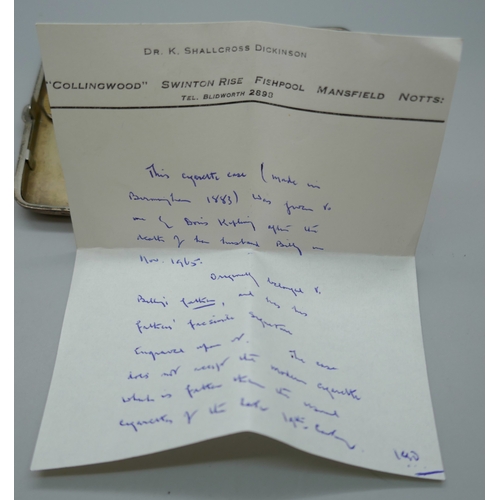 DR. K. SHALLCROSS DICKINSON
"COLLINGWOOD" SWINTON RISE FISHPOOL MANSFIELD NOTTS:
TEL. BLIDWORTH 2693
This cigarette case (made in
Birmingham 1883) was given to
me by Doris Kipling after the
death of her husband Billy in
Nov. 1965.
Originally belonged to
Billy's father, and has his
father's facsimile signature
Engraved upon it. The case
does not accept the modern cigarette
which is fatter than the usual
cigarettes of the later 19th Century.
KSD